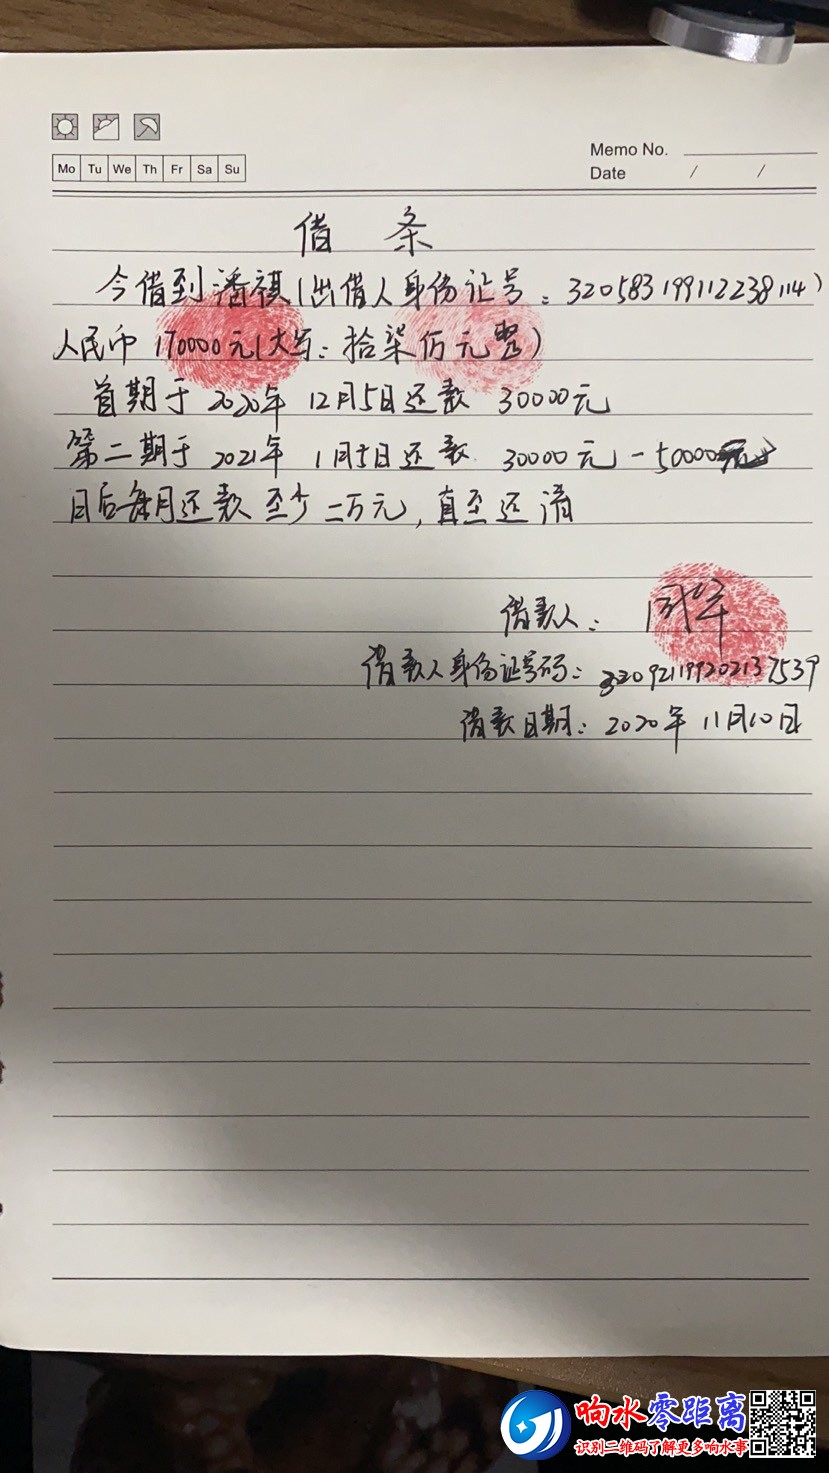 Mo Tu We Th Fr Sa Su
Memo No.
Date / /
借 条
今借到潘祺(出借人身份证号:320583199112238114)
人民币170000元(大写:拾柒万元整)
首期于2020年12月5日还款 30000元
第二期于2021年1月5日还款 30000元-50000元
日后每月还款至少二万元,直至还清
借款人:周华
借款人身份证号码:320921199202137539
借款日期:2020年11月10日
响水零距离
识别二维码了解更多响水事